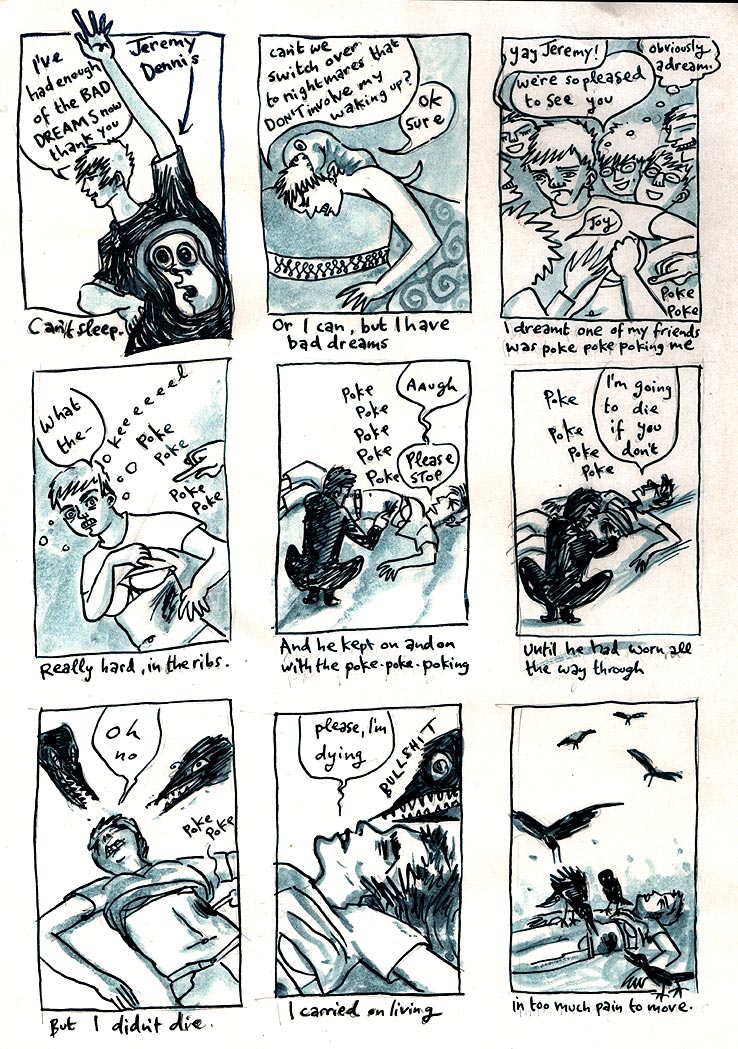 I've
had enough
of the BAD
DREAMS now
thank you
Jeremy
Dennis
Can't sleep.
can't we
switch over
to nightmares that
DON'T involve my
waking up?
OK
sure
Or I can, but I have
bad dreams
yay Jeremy!
we're so pleased
to see you
obviously
a dream.
Joy
Poke
Poke
I dreamt one of my friends
was poke poke poking me
What
the-
okeeeeeel
Poke
Poke
Poke
Poke
Really hard, in the ribs.
Poke
Poke
Poke
Poke
Poke
Aaugh
Please
STOP
And he kept on and on
with the poke-poke-poking
Poke
Poke
Poke
Poke
I'm going
to die
if you
don't
Until he had worn all
the way through
Oh
no
Poke
Poke
But I didn't die.
please, I'm
dying
BULLSHIT
I carried on living
in too much pain to move.